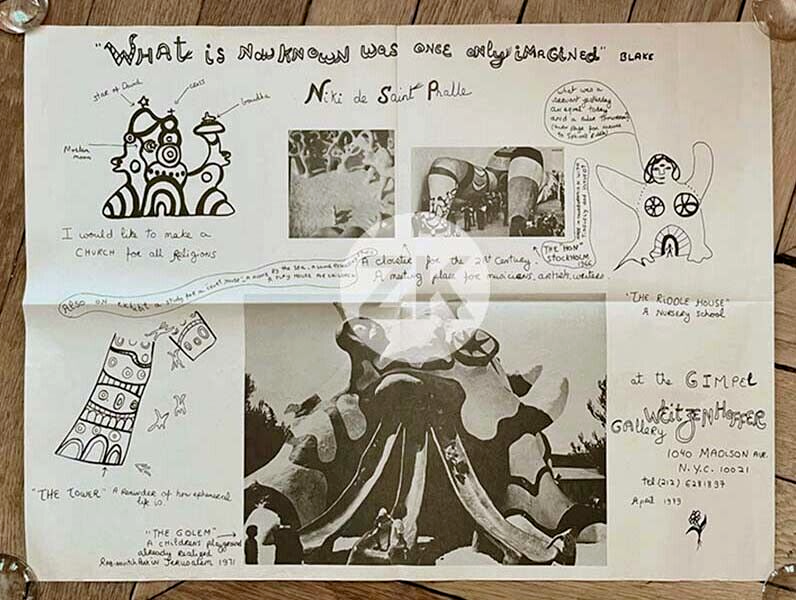 "WHAT is NOW KNOWN WAS ONCE ONLY iMAGINED" BLAKE
Niki de Saint Phalle
Star of David
cross
buddha
Moslem
moon
I would like to make a
CHURCH for all Religions
what was a
servant yesterday
an equal today
and a ruler tomorrow
THE "HON"
STOCKHOLM
1966
A cloister for the 21st Century
A meeting place for musicians, artists, writers.
Also on exhibit a study for a
A PLAY HOUSE FOR CHILDREN
"THE RIDDLE HOUSE"
A NURSERY SCHOOL
at the GIMPEL
WEITZENHOFFER
GALLERY
1040 MADISON AVE.
N.Y.C. 10021
tel (212) 6281897
April 1979
"THE TOWER" A Reminder of how ephemeral
life is.
"THE GOLEM"
A children's playground
already realized
in JERUSALEM 1971